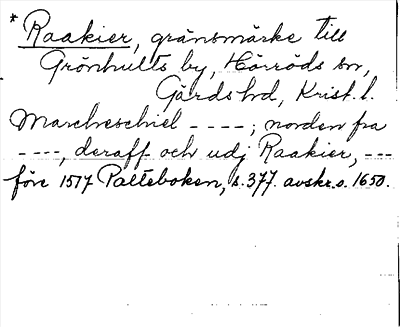 * Raakier, gränsmärke till
Grönhults by, Hörröds sn,
Gärds hd, Krist. l.
Marchreschiel - - - - ; norden fra
- - - -, deraff och udj Raakier, - - -
före 1517 Palteboken, s. 377. avskr. o. 1650.